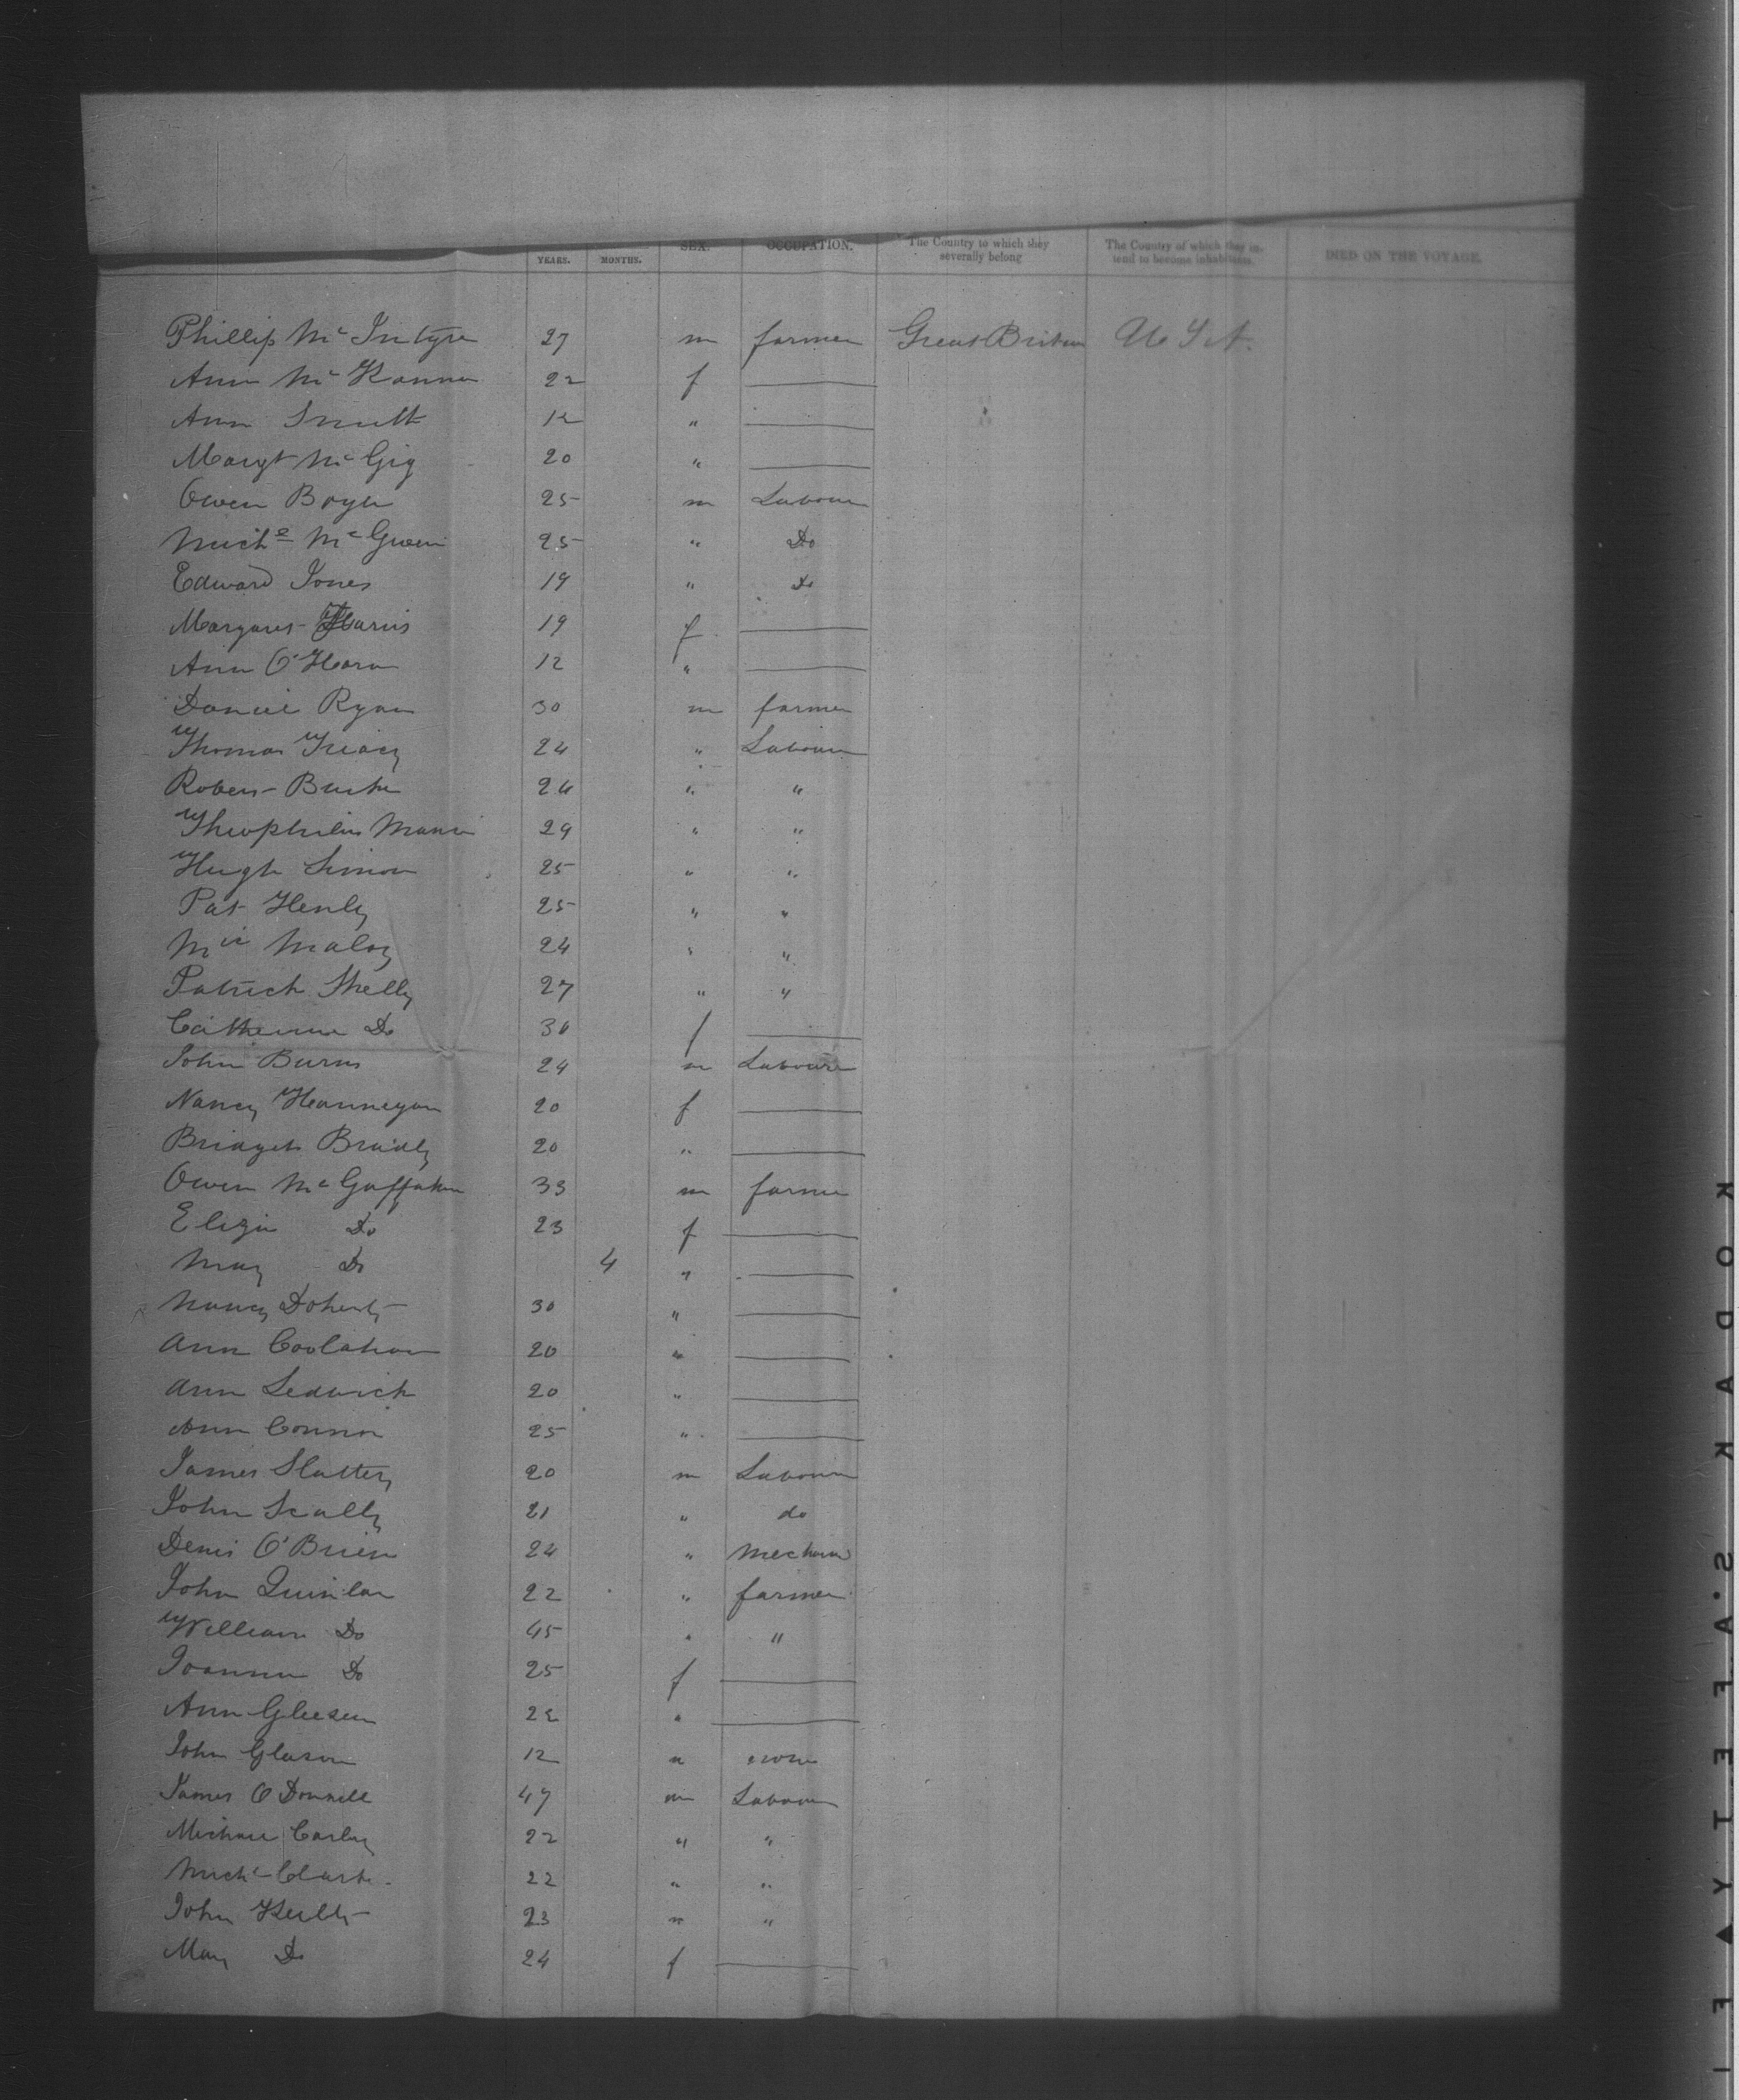 YEARS. MONTHS. SEX. OCCUPATION. The Country to which they severally belong The Country of which they intend to become inhabitants. DIED ON THE VOYAGE.
Phillip Mc Intyre 27 m farmer Great Britain U S A.
Ann Mc Kanna 22 f
Ann Smith 12 "
Margt Mc Gig 20 "
Owen Boyle 25 m Labourer
Miche Mc Gwein 25 " Do
Edward Jones 19 " Do
Margaret Harris 19 f
Ann O'Hara 12 "
Daniel Ryan 30 m farmer
Thomas Treacy 24 " Labourer
Robert Burke 24 " "
Theophilus Mann 29 " "
Hugh Simon 25 " "
Pat Henly 25 " "
Mic Maloy 24 " "
Patrick Shelly 27 " "
Catherine Do 30 f
John Burns 24 m Labourer
Nancy Hannegan 20 f
Bridget Bradly 20 "
Owen Mc Gaffakin 33 m farmer
Eliza Do 23 f
Mary Do 4 "
Nancy Doherty 30 "
Ann Coolahan 20 "
Ann Ledwich 20 "
Ann Connor 25 "
James Slattery 20 m Labourer
John Scally 21 " do
Denis O'Brien 24 " Mechanic
John Quinlan 22 " farmer
William Do 45 " "
Joanna Do 25 f
Ann Gleeson 22 "
John Gleason 12 " none
James O Donnell 47 m Labourer
Michael Carley 22 " "
Miche Clarke 22 " "
John Kelly 23 " "
Mary Do 24 f
KODAK S.A FETY ▲ F I